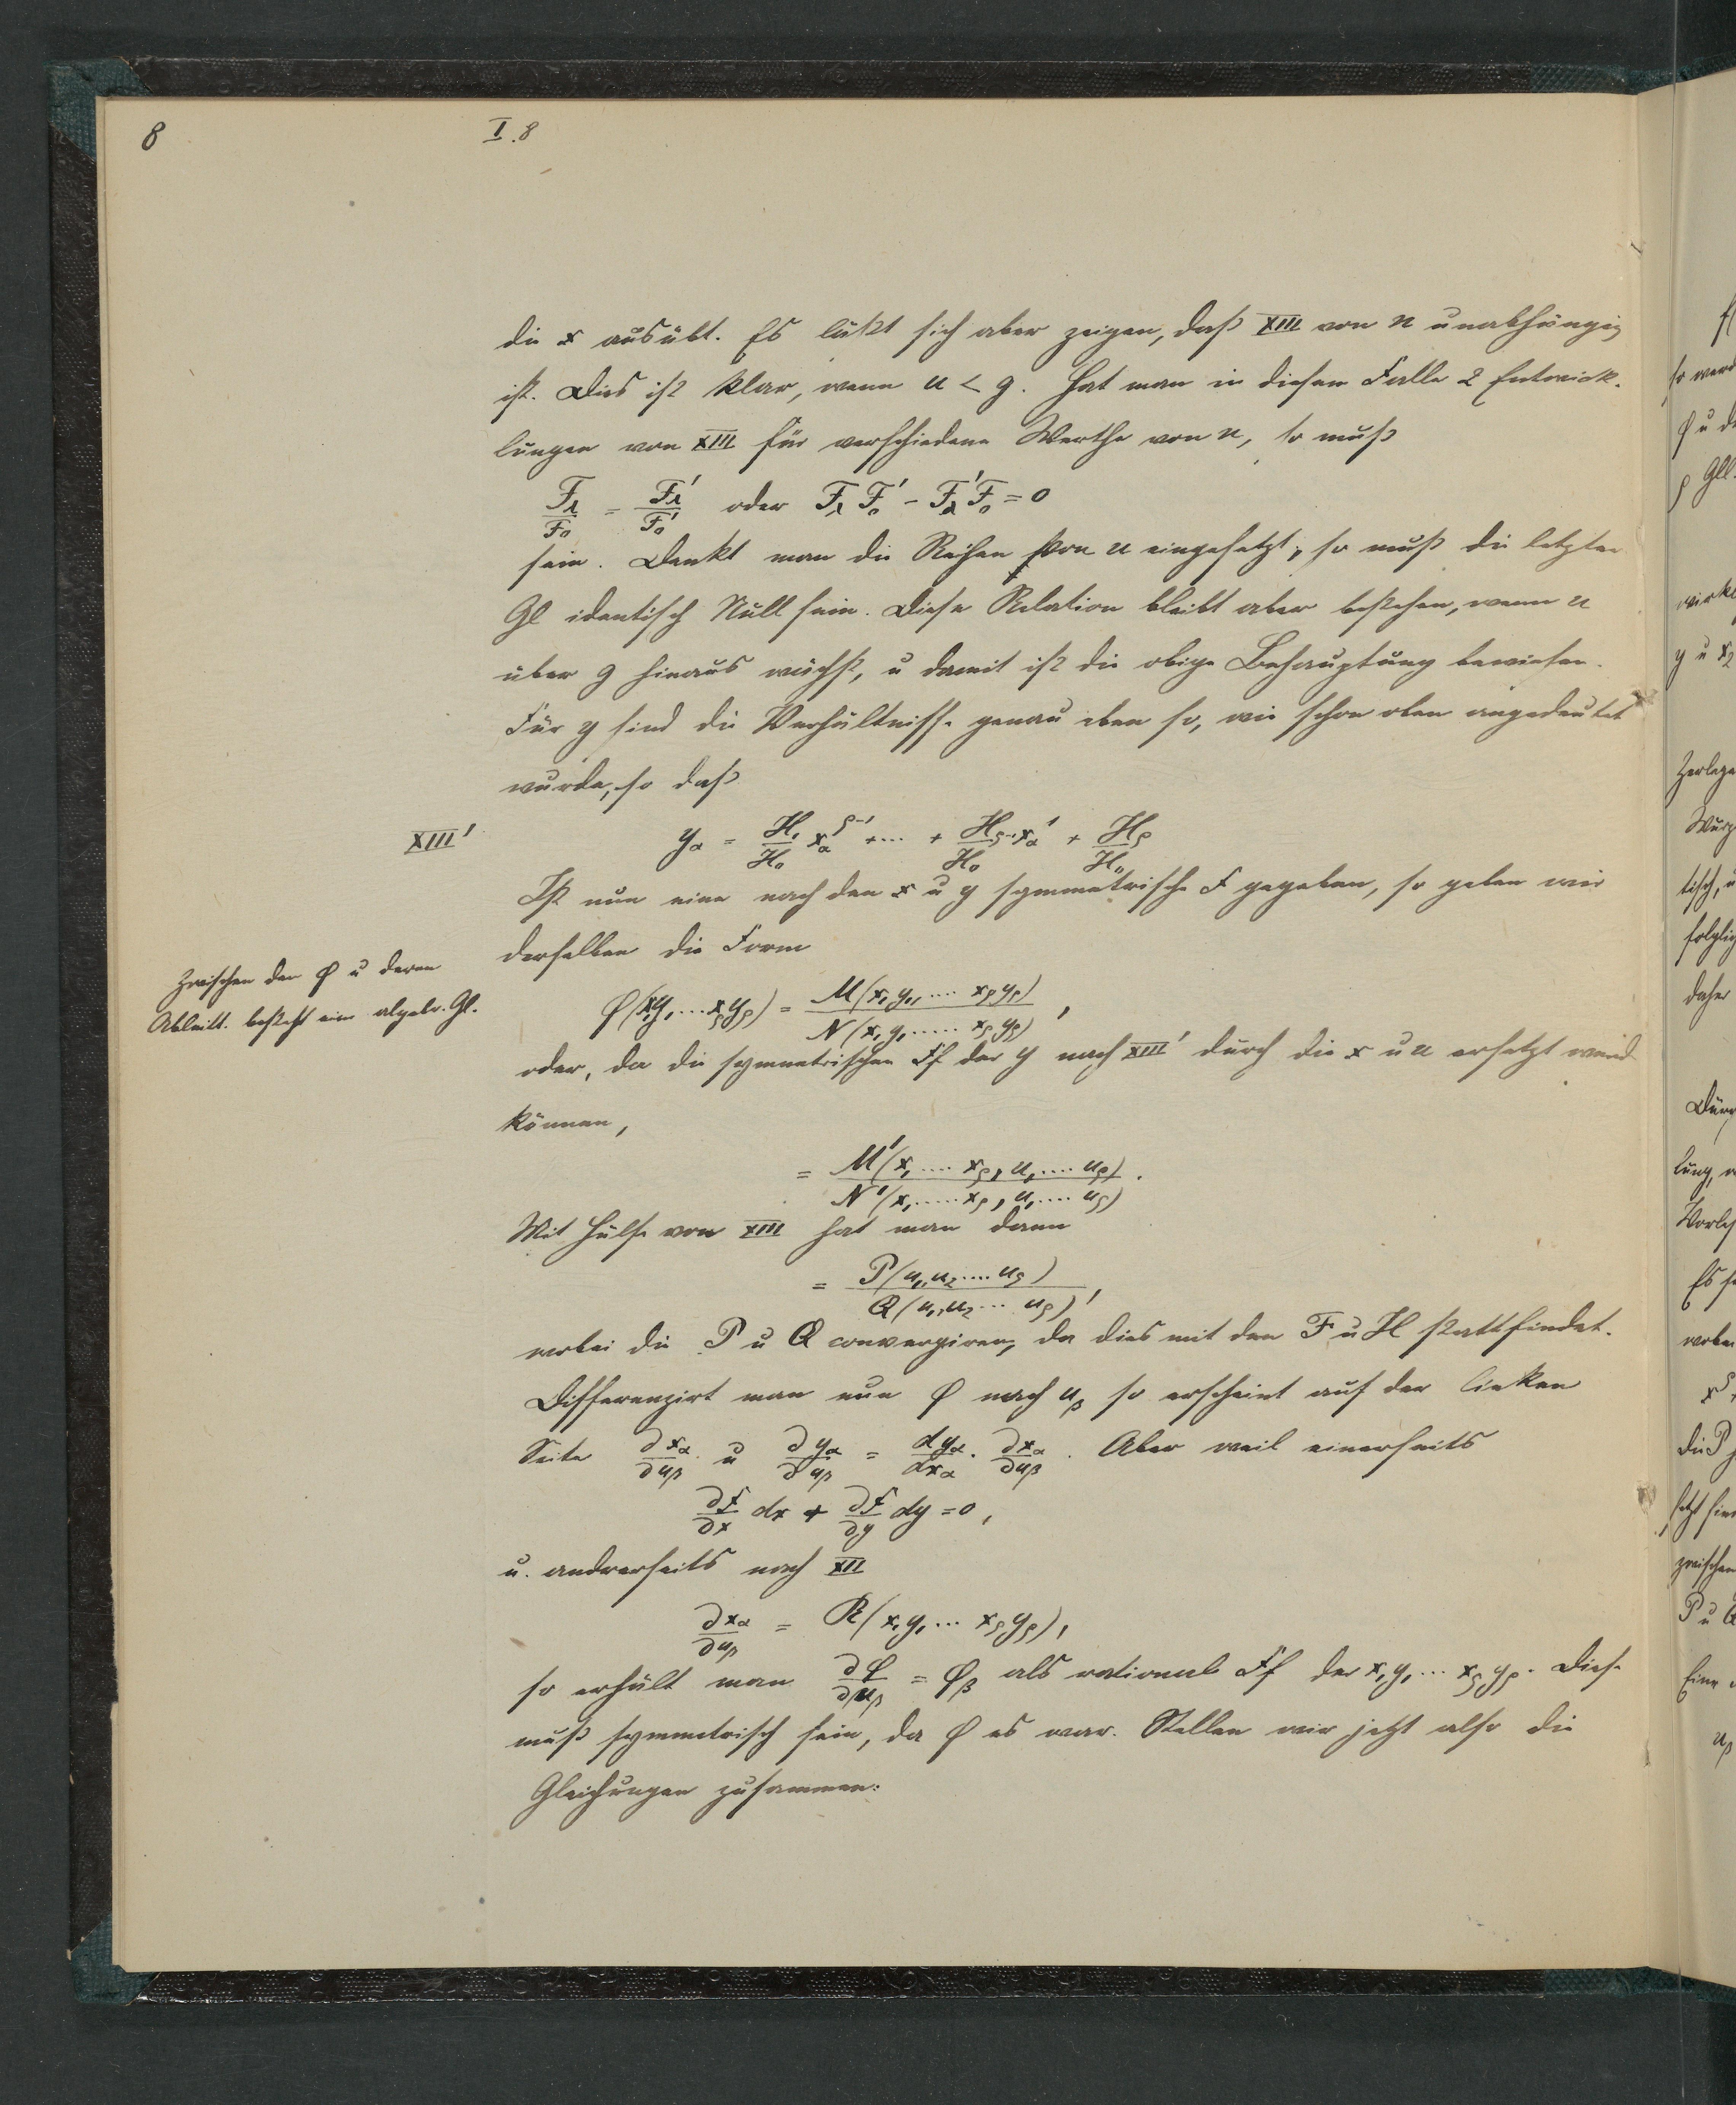 8
I.8
die x ausübt. Es läßt sich aber zeigen, daß XIII von n unabhängig
ist. Dies ist klar, wenn u < g. Hat man in diesem Falle 2 Entwick-
lungen von XIII für verschiedene Werthe von n, so muß
F_λ/F_0 = F_λ'/F_0' oder F_λ F_0' - F_λ' F_0 = 0
sein. Denkt man die Reihen von u eingesetzt, so muß die letzte
Gl identisch Null sein. Diese Relation bleibt aber bestehen, wenn u
über g hinaus wächst, u damit ist die obige Behauptung bewiesen.
Für y sind die Verhältnisse genau eben so, wie schon oben angedeutet
wurde, so daß
XIII' y_α = H_1/H_0 x_α^{ρ-1} + ... + H_{ρ-1}/H_0 x_α^1 + H_ρ/H_0
Ist nun eine nach den x u y symmetrische F gegeben, so geben wir
derselben die Form
Zwischen den φ u deren
Ableitt. besteht eine algebr. Gl.
φ(x_1y_1 .... x_ρy_ρ) = M(x_1y_1, .... x_ρy_ρ) / N(x_1y_1 ..... x_ρy_ρ),
oder, da die symmetrischen Ff der y nach XIII' durch die x u u ersetzt werd
können,
= M'(x_1 .... x_ρ, u_1 .... u_ρ) / N'(x_1 ..... x_ρ, u_1 .... u_ρ).
Mit Hülfe von XIII hat man dann
= P(u_1, u_2 .... u_ρ) / Q(u_1, u_2 ... u_ρ),
wobei die P u Q convergiren, da dies mit den F u H stattfindet.
Differenzirt man nun φ nach u_β so erscheint auf der linken
Seite ∂x_α/∂u_β u ∂y_α/∂u_β = dy_α/dx_α · ∂x_α/∂u_β. Aber weil einerseits
∂f/∂x dx + ∂f/∂y dy = 0,
u. andrerseits nach XII
∂x_α/∂u_β = R(x_1y_1 ... x_ρy_ρ),
so erhält man ∂φ/∂u_β = φ_β als rationale Ff der x_1y_1 ... x_ρy_ρ. Diese
muß symmetrisch sein, da φ es war. Stellen wir jetzt also die
Gleichungen zusammen: